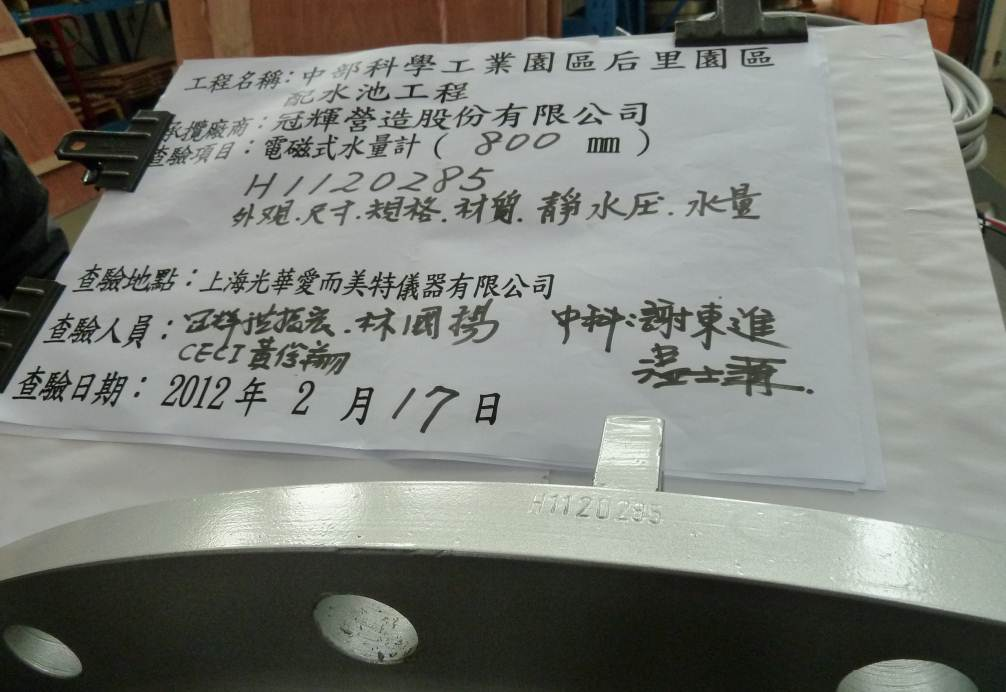 工程名稱：中部科學工業園區后里園區
配水池工程
承攬廠商：冠輝營造股份有限公司
查驗項目：電磁式水量計（ 800 ㎜ ）
H1120285
外觀.尺寸.規格.材質.靜水压.水量
查驗地點：上海光華愛而美特儀器有限公司
查驗人員：冠輝 林國揚 中科：謝東進
CECI 黃俊翰
查驗日期：2012年 2 月17日
H1120285